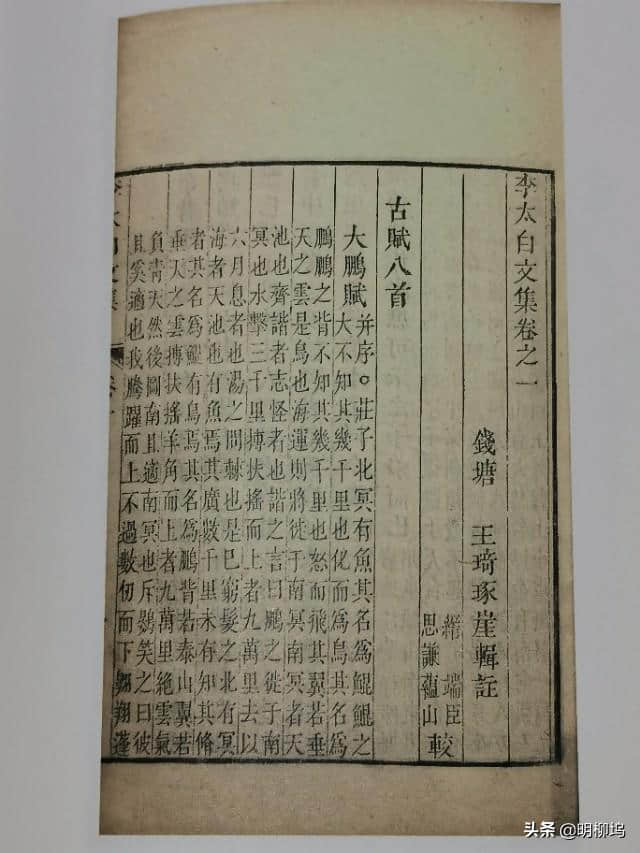 李太白文集卷之一
錢塘 王琦琢崖輯註
縉 端臣
思謙蘊山
較
古賦八首
大鵬賦
并序。莊子北冥有魚其名爲鯤鯤之
大不知其幾千里也化而爲鳥其名爲
鵬鵬之背不知其幾千里也怒而飛其翼若垂
天之雲是鳥也海運則將徙于南冥南冥者天
池也齊諧者志怪者也諧之言曰鵬之徙于南
冥也水擊三千里摶扶搖而上者九萬里去以
六月息者也湯之問棘也是已窮髮之北有冥
海者天池也有魚焉其廣數千里未有知其脩
者其名爲鯤有鳥焉其名爲鵬背若泰山翼若
垂天之雲摶扶搖羊角而上者九萬里絶雲氣
負青天然後圖南且適南冥也斥鷃笑之曰彼
且奚適也我騰躍而上不過數仞而下翱翔蓬
李太白文集 卷一
头条 @明柳坞